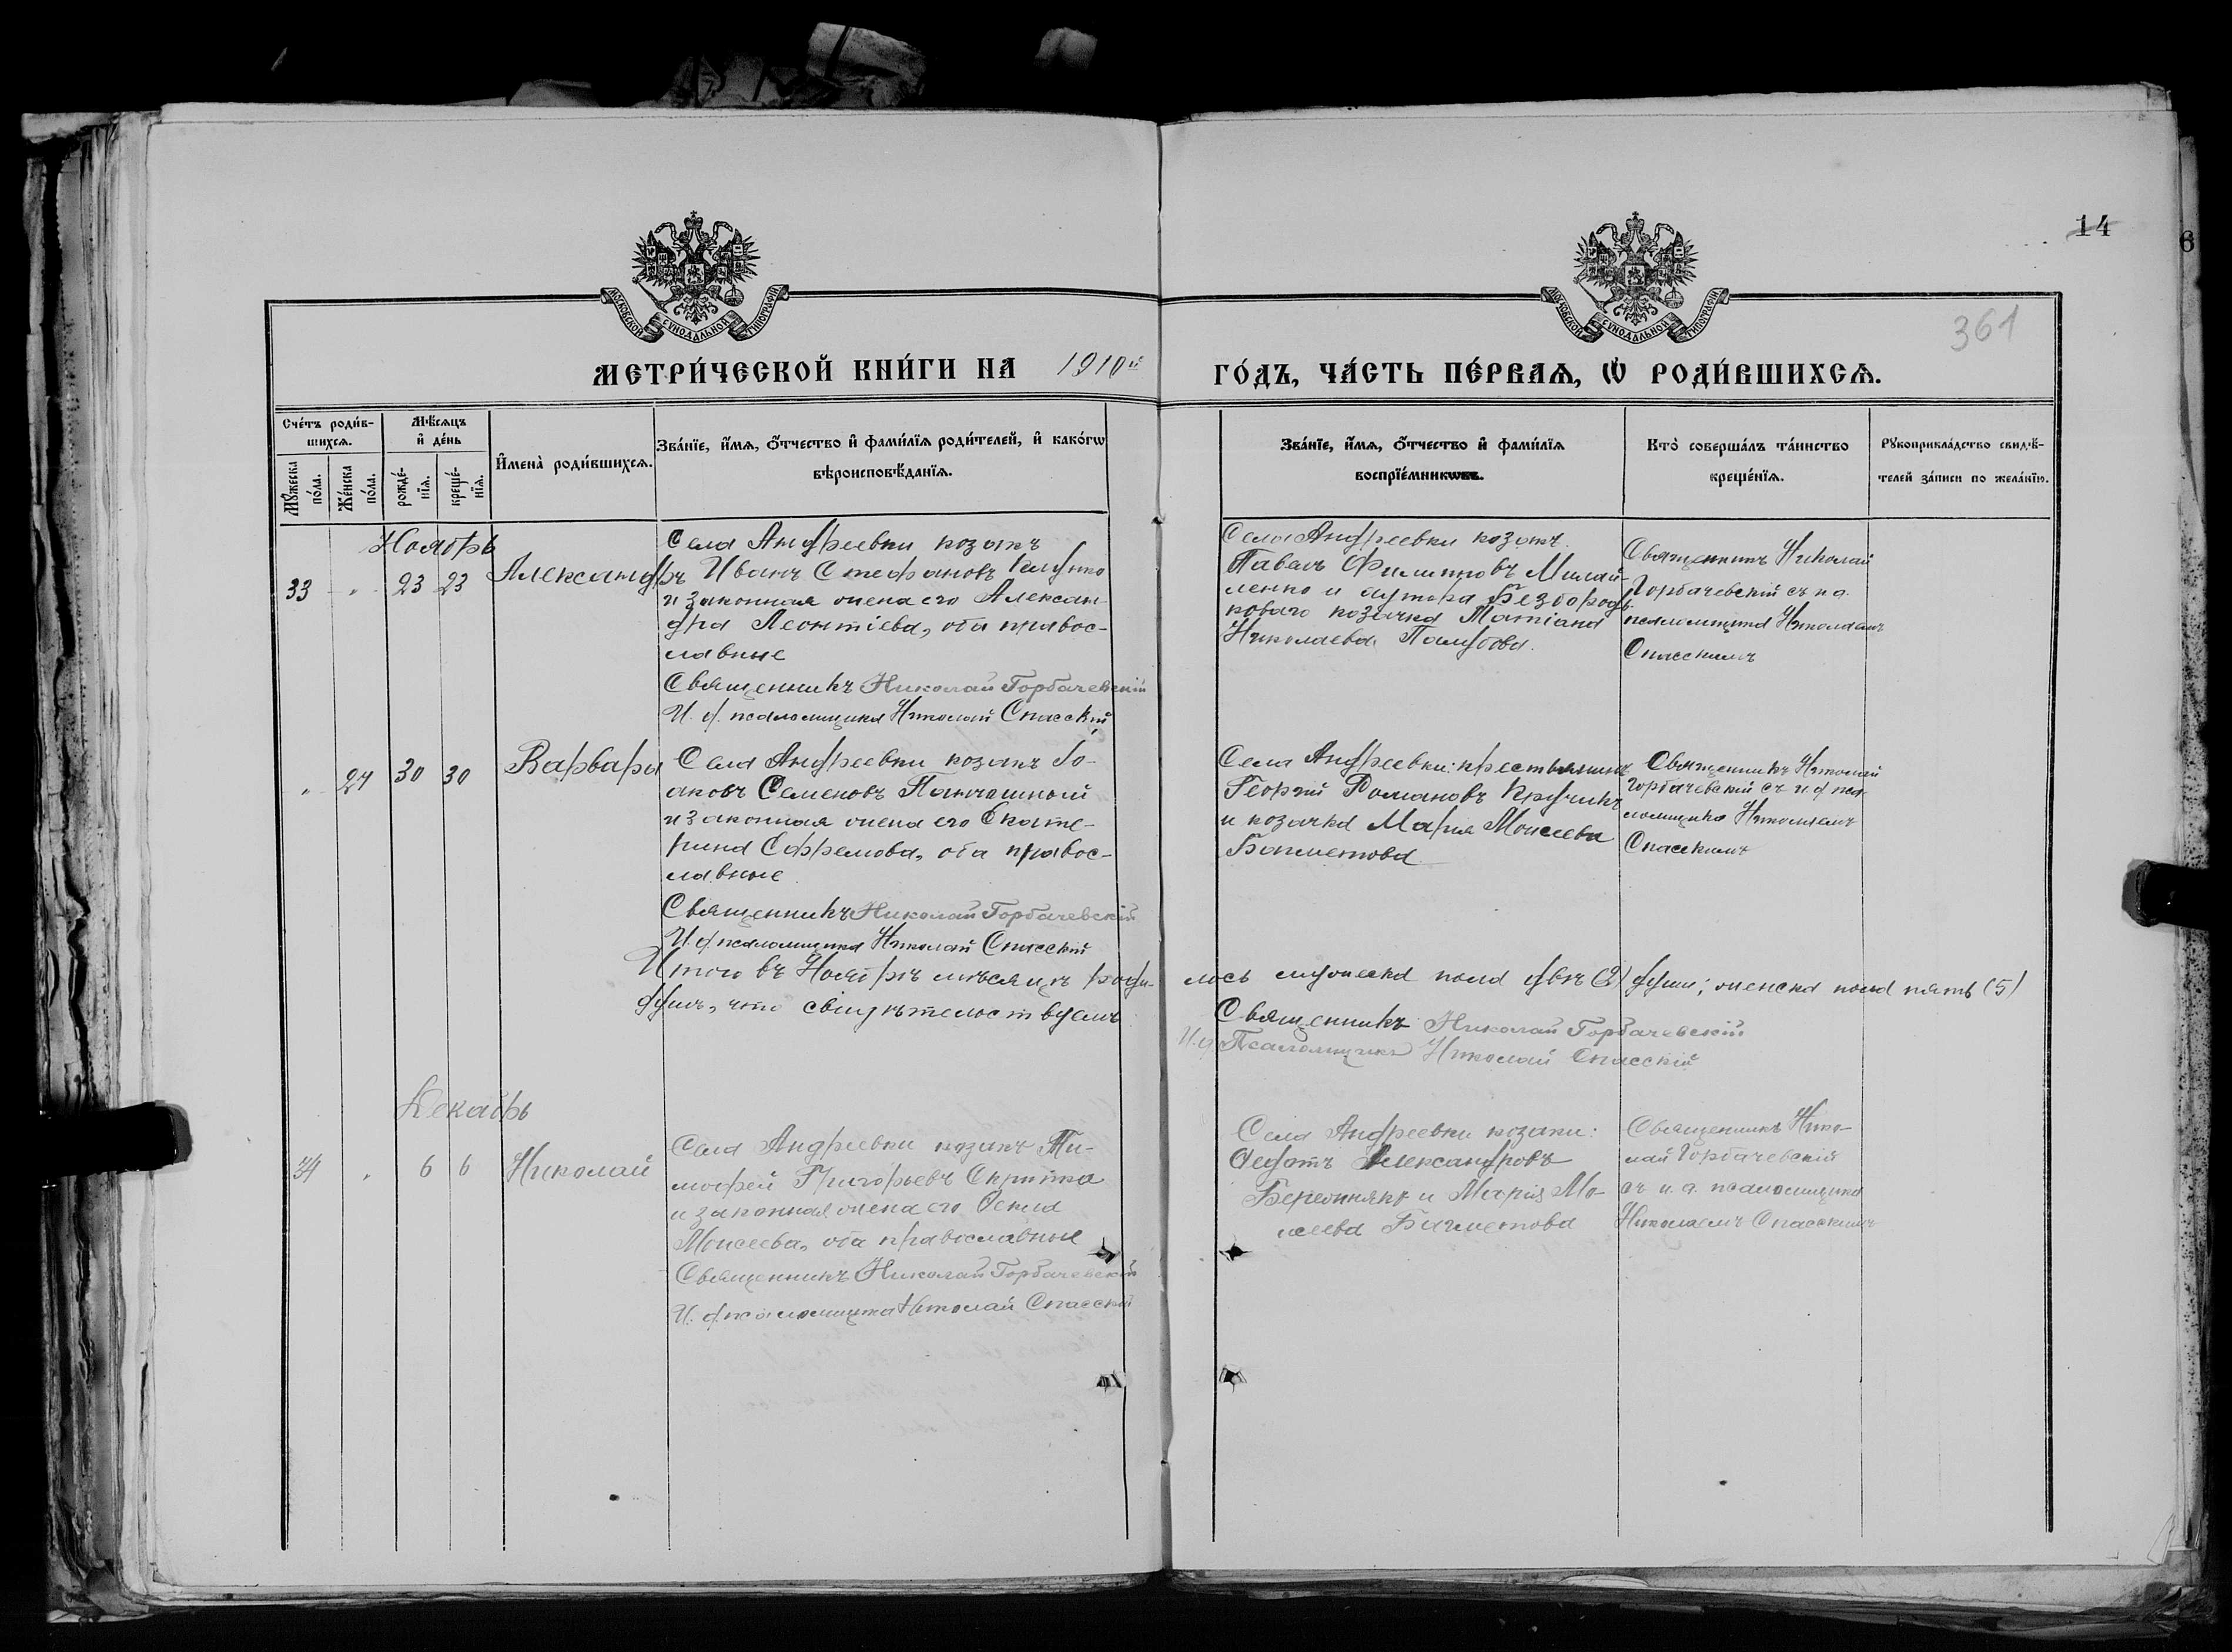 14
6
361
МОСКОВСКОЙ СѴНОДАЛЬНОЙ ТИПОГРАФІИ
МОСКОВСКОЙ СѴНОДАЛЬНОЙ ТИПОГРАФІИ
МЕТРИ́ЧЕСКОЙ КНИ́ГИ НА 1910й ГО́ДЪ, ЧА́СТЬ ПЕ́РВАѦ, Ѡ РОДИ́ВШИХСѦ.
Сче́тъ роди́в-
шихсѧ.
Мꙋ́жеска
по́ла.
Же́нска
по́ла.
Мѣ́сѧцъ
и҆ де́нь
рожде́-
нїѧ.
креще́-
нїѧ.
И҆мена̀ роди́вшихсѧ.
Зва́нїе, и҆́мѧ, ѻ҆́тчество и҆ фами́лїѧ роди́телей, и҆ како́гѡ
вѣроисповѣ́данїѧ.
Зва́нїе, и҆́мѧ, ѻ҆́тчество и҆ фами́лїѧ
воспрїе́мникѡвъ.
Кто̀ соверша́лъ та́инство
креще́нїѧ.
Рꙋкоприкла́дство свидѣ́-
телей за́писи по жела́нїю.
Ноябрь
33 " 23 23 Александръ
Села Андреевки козакъ
Иванъ Стефановъ
и законная жена его Алексан-
дра Леонтіева, оба правос-
лавные
Священникъ Николай Горбачевскій
И. д. псаломщика Николай Спасскій
Села Андреевки козакъ
Павелъ Филипповъ Милай-
ленко и хутора Безбородь-
коваго козачка Матіана
Николаева
Священникъ Николай
Горбачевскій съ и д.
псаломщика Николаемъ
Спасскимъ
" 24 30 30 Варвара
Села Андреевки козакъ Іо-
аковъ Семеновъ
и законная жена его Екате-
рина Ефремова, оба правос-
лавные
Священникъ Николай Горбачевскій
И. д. псаломщика Николай Спасскій
Села Андреевки: крестьянинъ
Георгій Романовъ Кручикъ
и козачка Марія Моисеева
Бахметова
Священникъ Николай
Горбачевскій съ и. д. пса-
ломщика Николаемъ
Спасскимъ
Итого въ Ноябрѣ мѣсяцѣ роди- лось мужеска пола двѣ (2) души; женска пола пять (5)
душъ, что свидѣтельствуемъ
Священникъ Николай Горбачевскій
И. д. Псаломщика Николай Спасскій
Декабрь
34 " 6 6 Николай
Села Андреевки козакъ Ти-
мофей Григорьевъ Скрипка
и законная жена его Ѳекла
Моисеева, оба православные
Священникъ Николай Горбачевскій
И. д. псаломщика Николай Спасскій
Села Андреевки козаки:
Ѳедотъ Александровъ
и Марія Мо-
исеева Бахметова
Священникъ Нико-
лай Горбачевскій
съ и. д. псаломщика
Николаемъ Спасскимъ